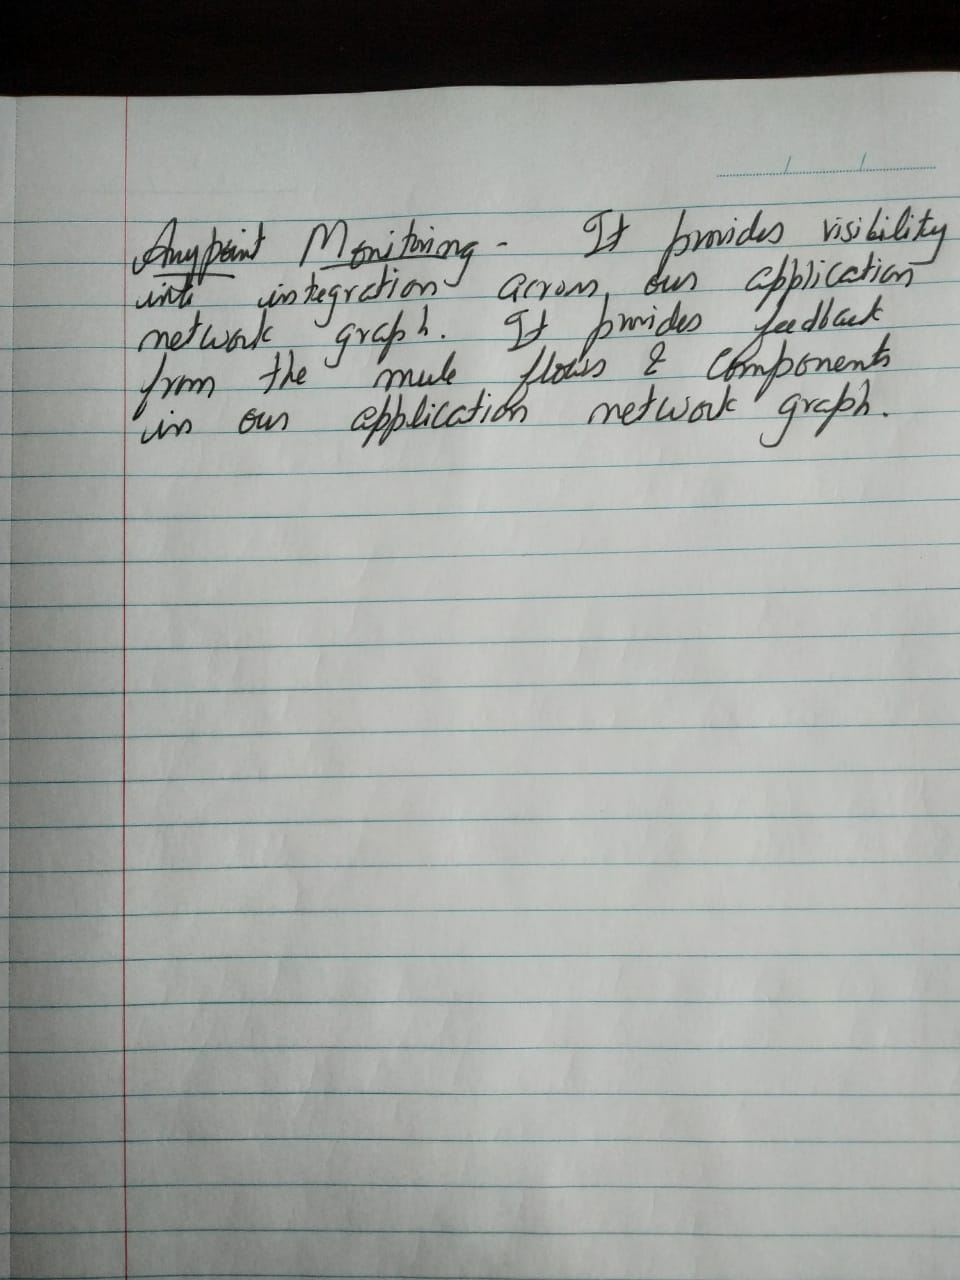 Anypoint Monitoring - It provides visibility
into integration across our application
network graph. It provides feedback
from the mule flows & components
in our application network graph.